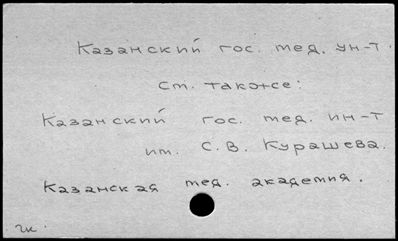 Казанский гос. мед. ун-т.
см. также:
Казанский гос. мед. ин-т
им. С. В. Курашева.
Казанская мед. академия.
гк.